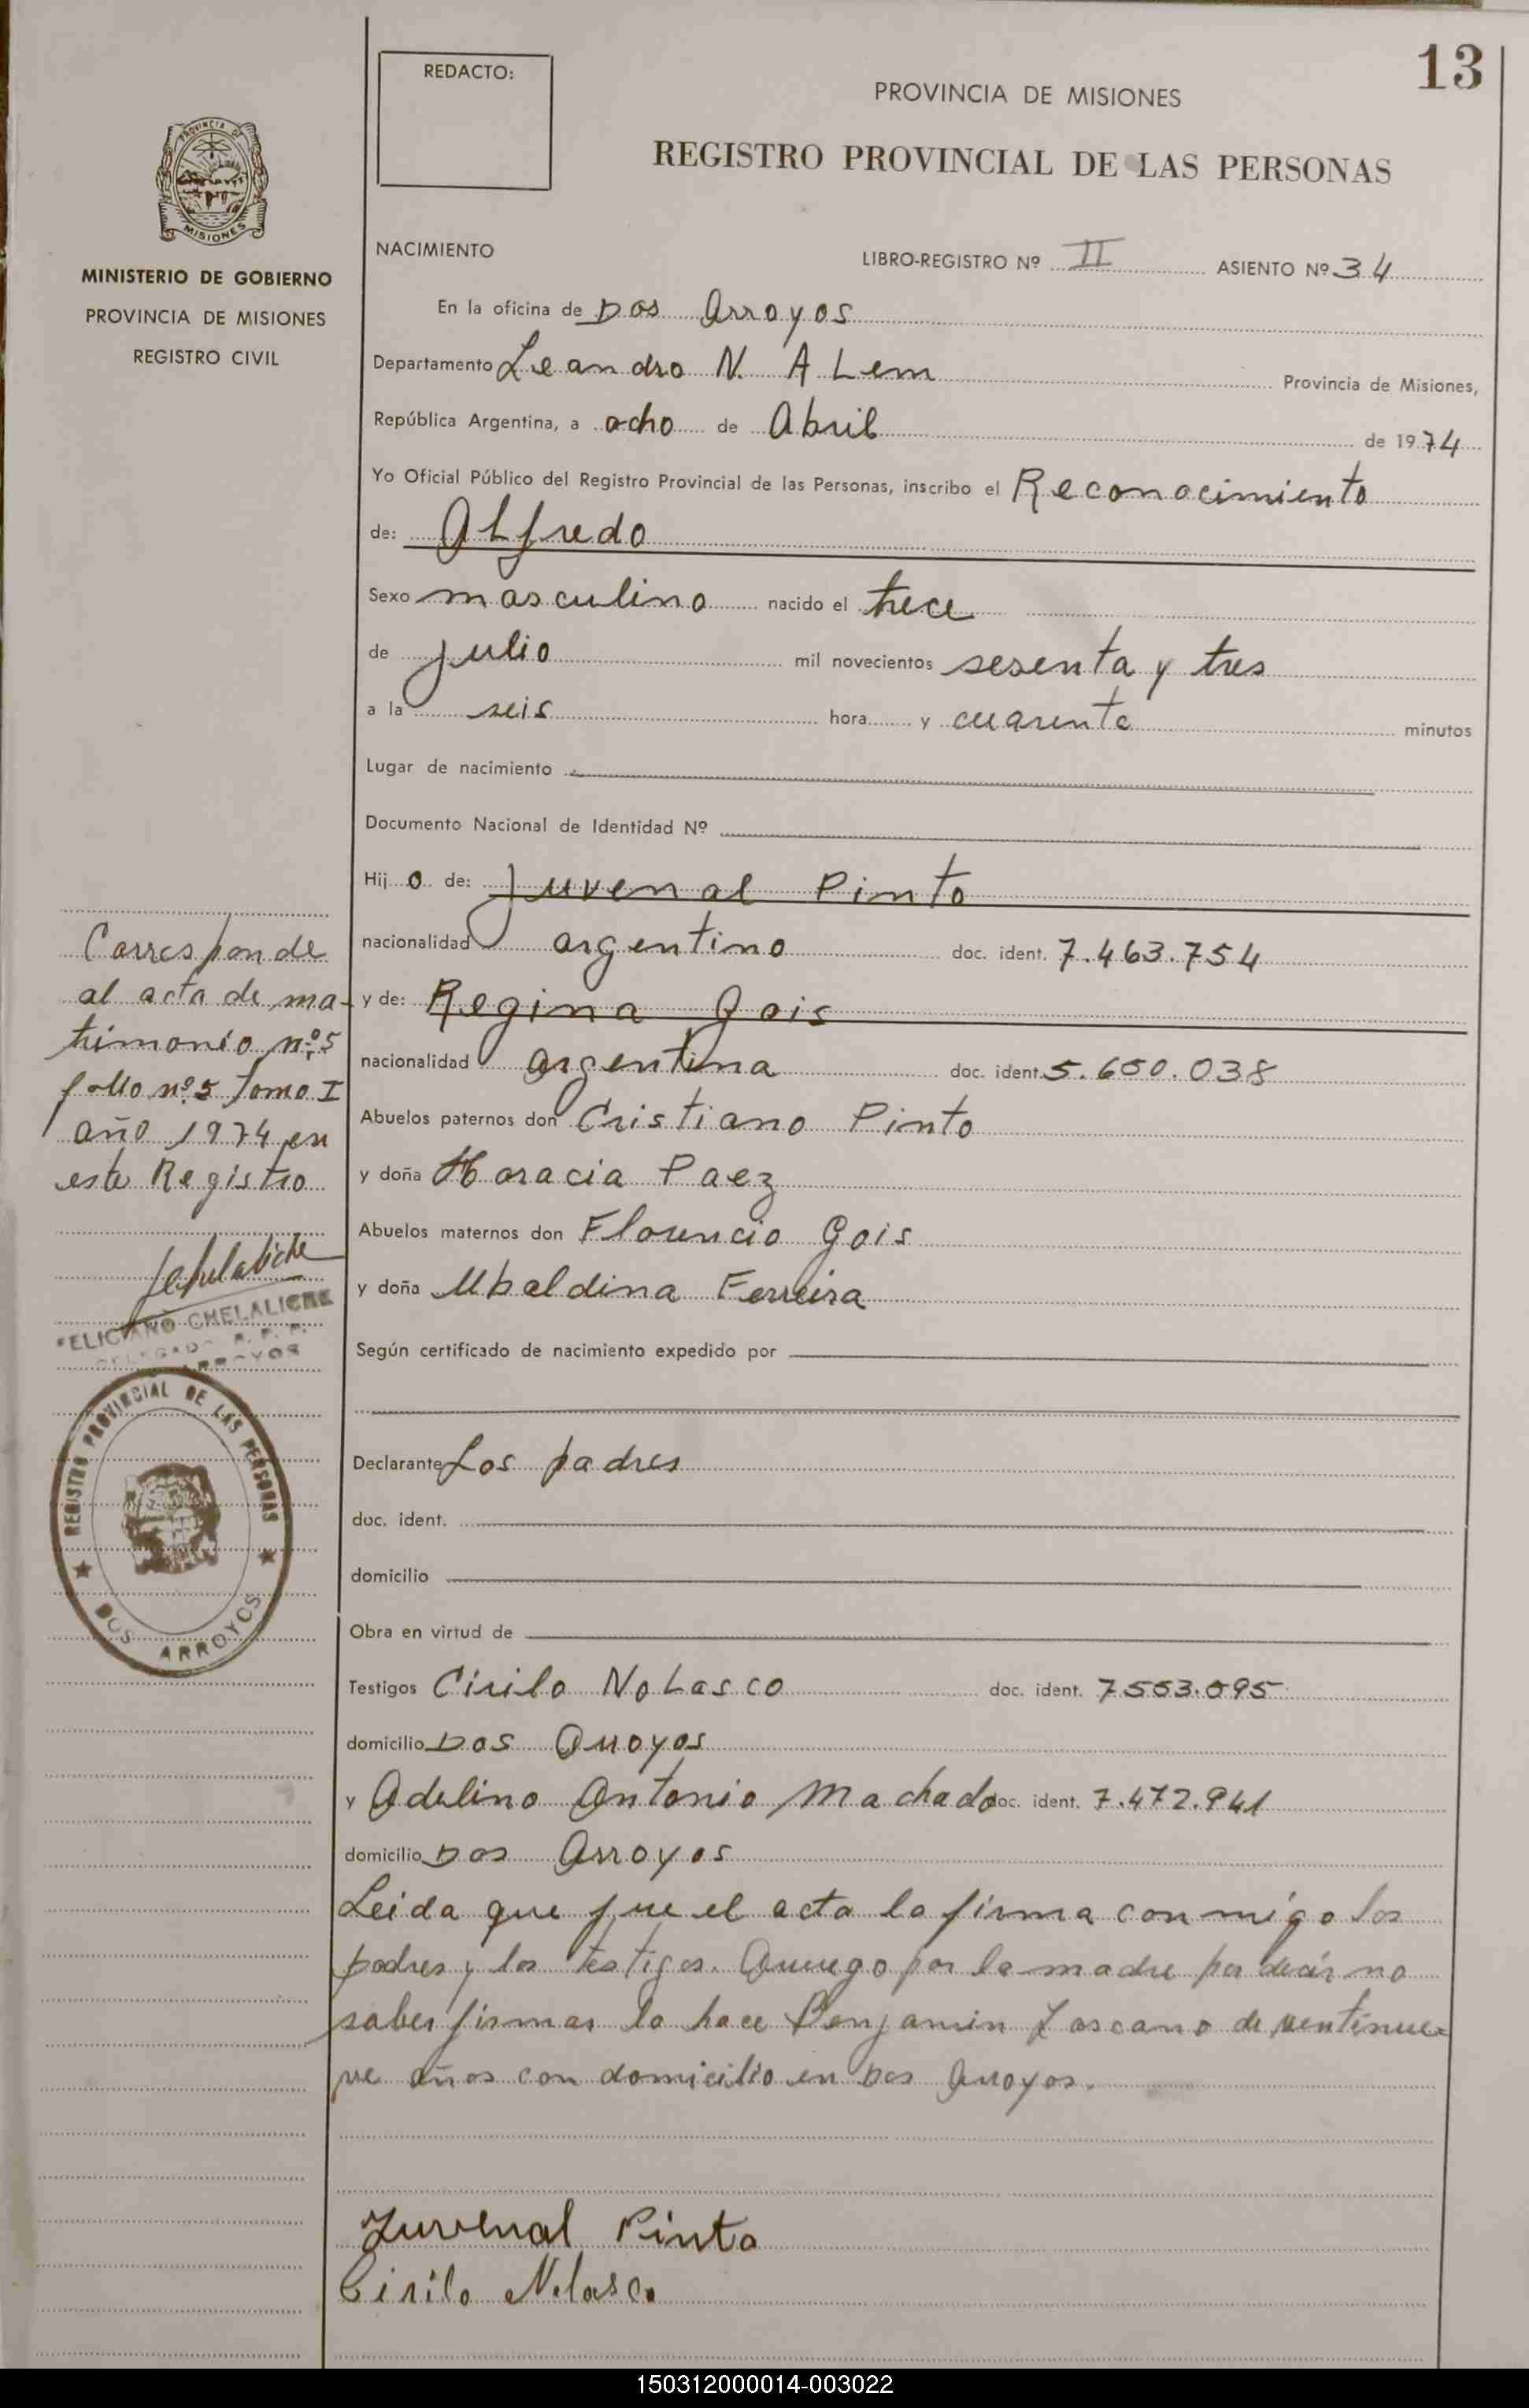 13
REDACTO:
PROVINCIA DE MISIONES
REGISTRO PROVINCIAL DE LAS PERSONAS
PROVINCIA DE
MISIONES
MINISTERIO DE GOBIERNO
PROVINCIA DE MISIONES
REGISTRO CIVIL
NACIMIENTO
LIBRO-REGISTRO Nº II ASIENTO Nº 34
En la oficina de Dos Arroyos
Departamento Leandro N. ALem Provincia de Misiones,
República Argentina, a ocho de Abril de 1974
Yo Oficial Público del Registro Provincial de las Personas, inscribo el Reconocimiento
de: ALfredo
Sexo masculino nacido el trece
de julio mil novecientos sesenta y tres
a la seis hora y cuarenta minutos
Lugar de nacimiento
Documento Nacional de Identidad Nº
Hij o de: Juvenal Pinto
nacionalidad argentino doc. ident. 7.463.754
y de: Regina Gois
nacionalidad argentina doc. ident. 5.650.038
Abuelos paternos don Cristiano Pinto
y doña Horacia Paez
Abuelos maternos don Florencio Gois
y doña Ubaldina Ferreira
Según certificado de nacimiento expedido por
Declarante Los padres
doc. ident.
domicilio
Obra en virtud de
Testigos Cirilo NoLasco doc. ident. 7553.095
domicilio Dos Arroyos
y Adelino Antonio Machado doc. ident. 7.472.941
domicilio Dos Arroyos
Leida que fue el acta la firma conmigo los
padres y los testigos. Arruego por la madre por decir no
saber firmar lo hace Benjamin Toscano de ventinue-
ve años con domicilio en Dos Arroyos.
Juvenal Pinto
Cirilo Nolasco
Corresponde
al acta de ma-
trimonio nº5
folio nº5 Tomo I
año 1974 en
este Registro
FELICIANO CHELALICHE
DELEGADO R. P. P.
ARROYOS
REGISTRO PROVINCIAL DE LAS PERSONAS
DOS ARROYOS
150312000014-003022